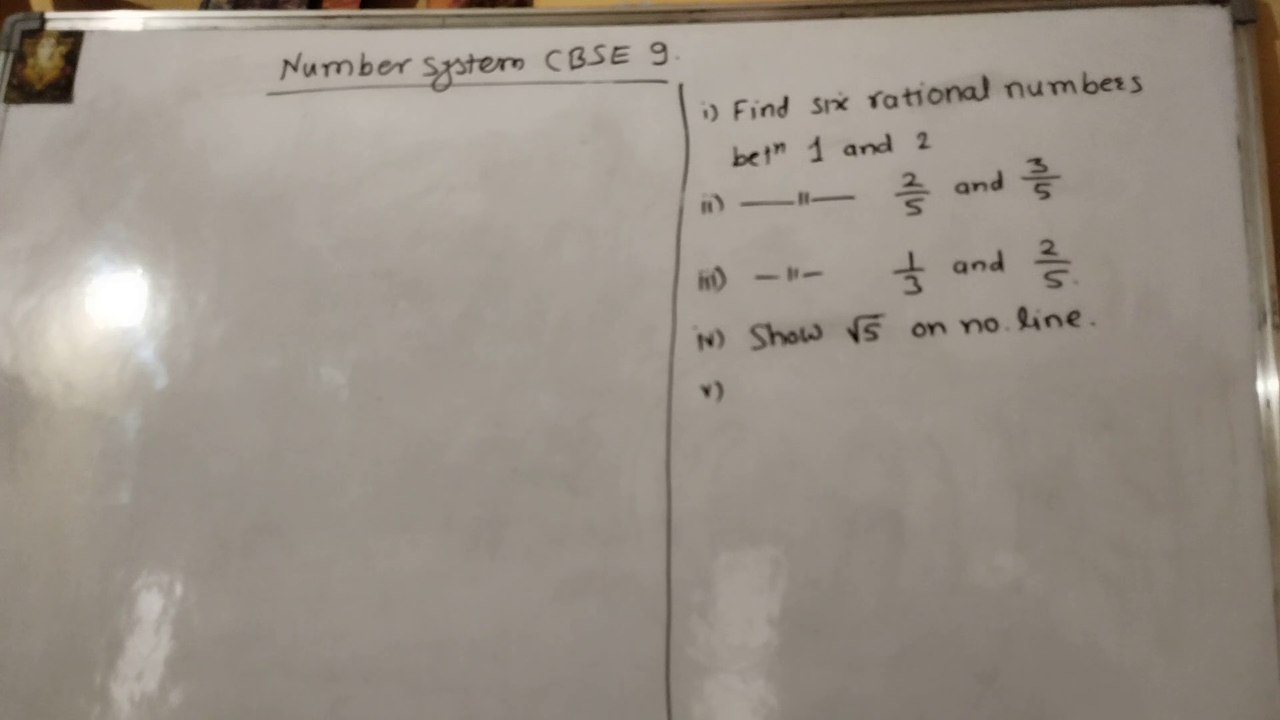 Number system CBSE 9.
i) Find six rational numbers
betn 1 and 2
ii) —"— 2/5 and 3/5
iii) —"— 1/3 and 2/5.
iv) Show √5 on no. line.
v)